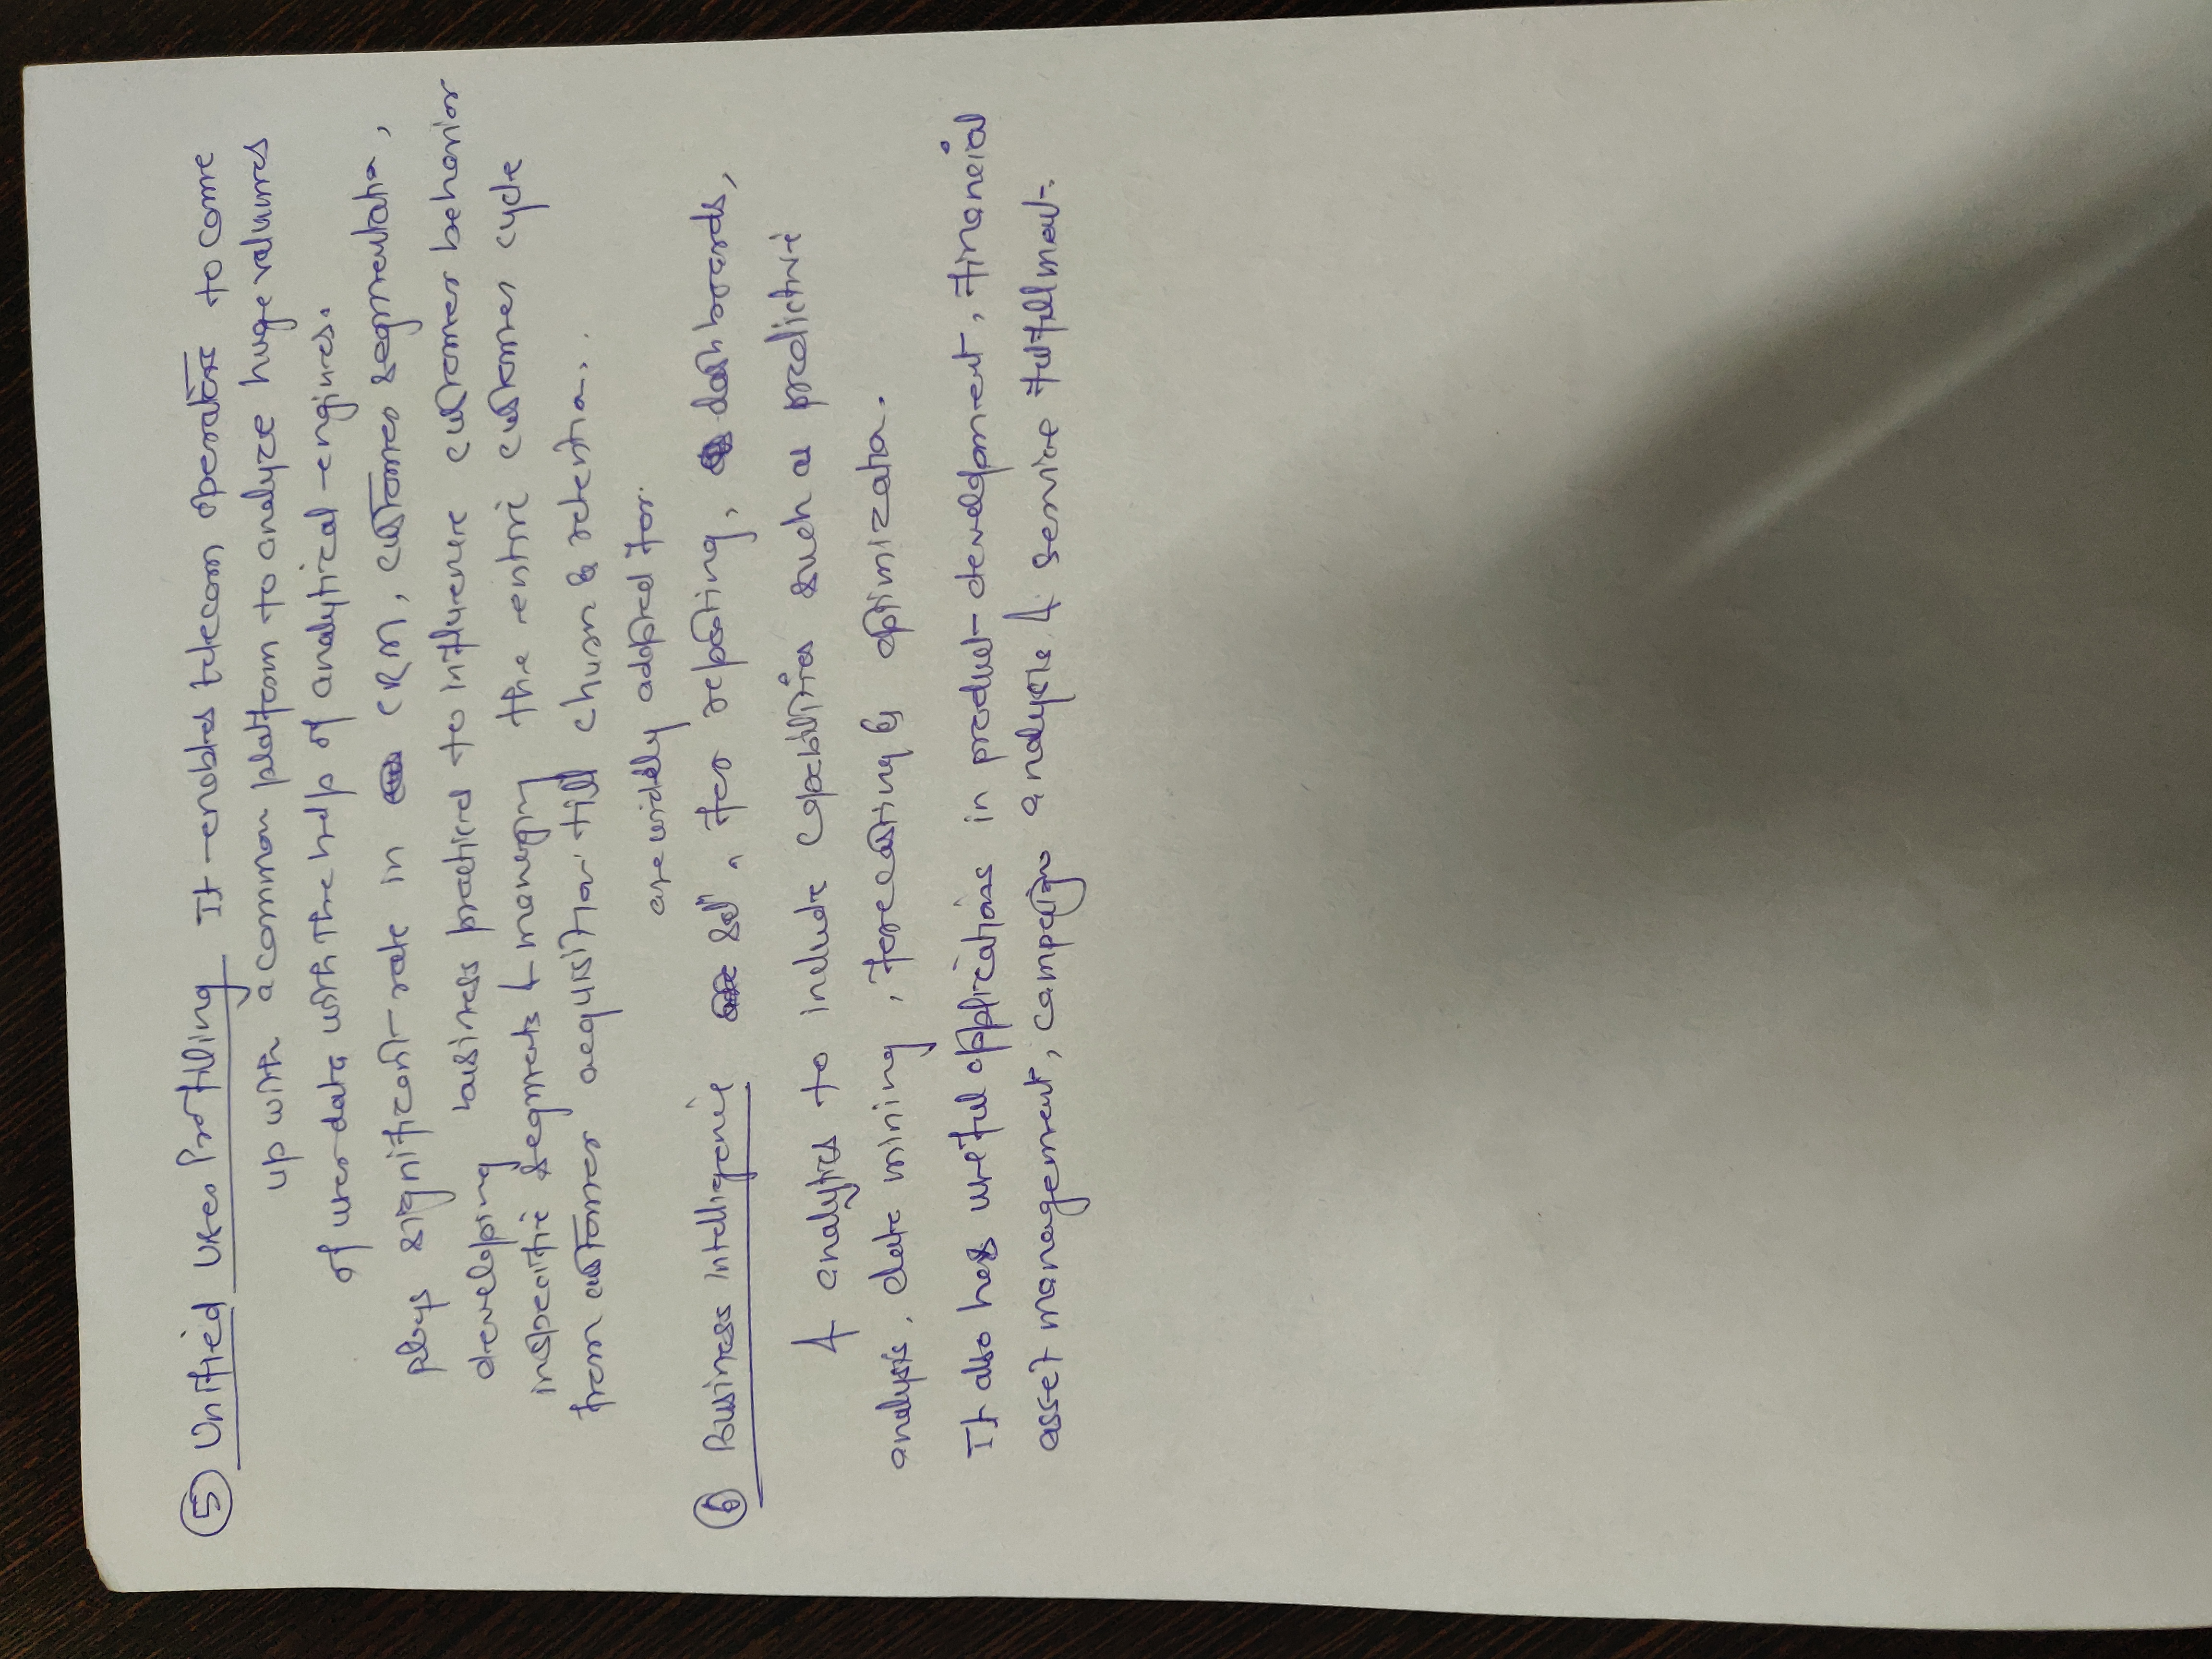 ⑤ Unified User Profiling It enables telecom operators to come
up with a common platform to analyze huge volumes
of user data with the help of analytical engines.
plays significant role in CRM, customer segmentation,
developing business practices to influence customer behavior
in specific segments & managing the entire customer cycle
from customer acquisition till churn & retention.
are widely adopted for
⑥ Business Intelligence sol^n for reporting, dashboards,
& analytics to include capabilities such as predictive
analysis, data mining, forecasting & optimization.
It also has useful applications in product development, financial
asset management, campaign analysis & service fulfillment.